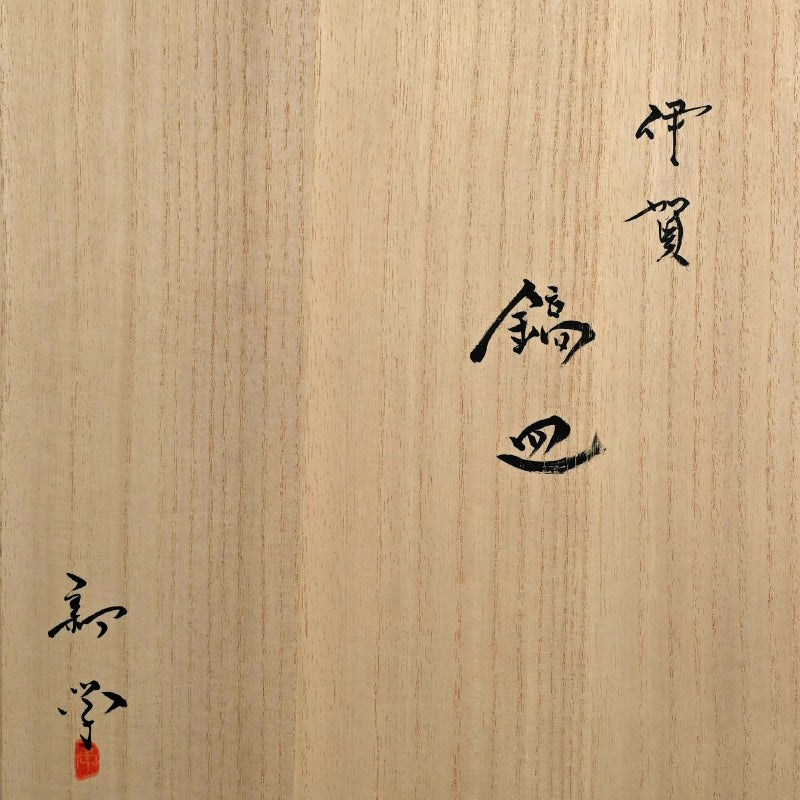 伊賀
鎬皿
新学